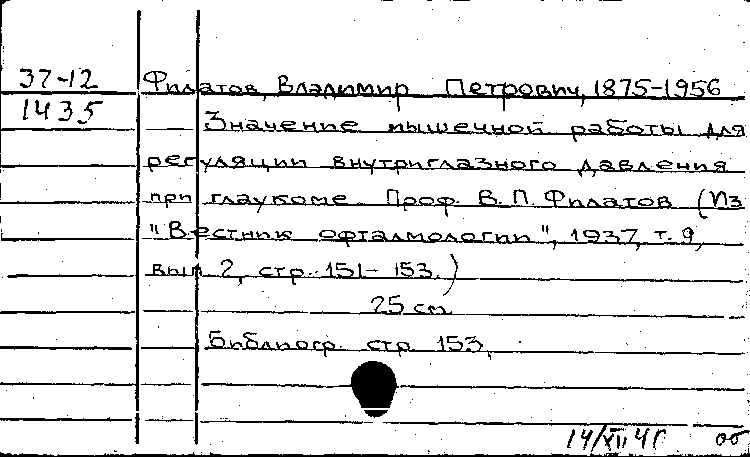 37-12 Филатов, Владимир Петрович, 1875-1956
1435 Значение мышечной работы для
регуляции внутриглазного давления
при глаукоме. Проф. В. П. Филатов (Из
"Вестник офталмологии", 1937, т. 9,
вып. 2, стр. 151-153.)
25 см
Библиогр. стр. 153.
14/XII 41 об